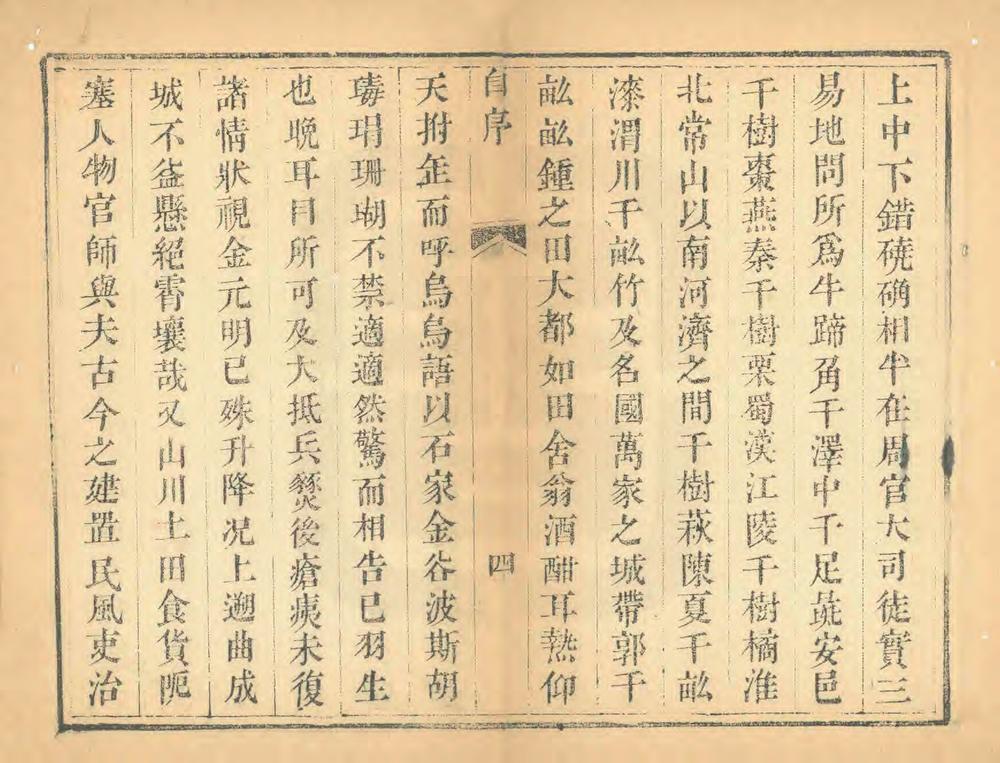 上中下錯磽确相半在周官大司徒實三
易地問所爲牛蹄角千澤中千足彘安邑
千樹棗燕秦千樹栗蜀漢江陵千樹橘淮
北常山以南河濟之間千樹萩陳夏千畝
漆渭川千畝竹及名國萬家之城帶郭千
畝畝鍾之田大都如田舍翁酒酣耳熱仰
自序
四
天拊缶而呼烏烏語以石家金谷波斯胡
毒瑁珊瑚不禁適適然驚而相告已羽生
也晚耳目所可及大抵兵燹後瘡痍未復
諸情狀視金元明已殊升降况上遡曲成
城不益懸絕霄壤哉又山川土田食貨阨
塞人物官師與夫古今之建置民風吏治